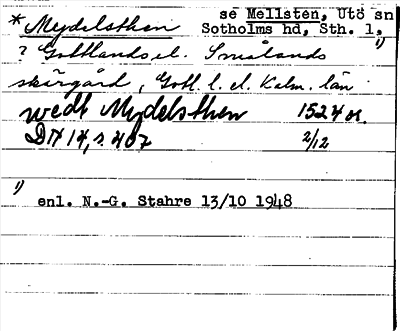 se Mellsten, Utö sn
* Mydelsthen Sotholms hd, Sth. l, 1)
? Gottlands el. Smålands
skärgård, Gotl. l. el. Kalm. län
wedt Mydelsthen 1524 or.
DN 14, s. 407 2/12
1) enl. N.-G. Stahre 13/10 1948